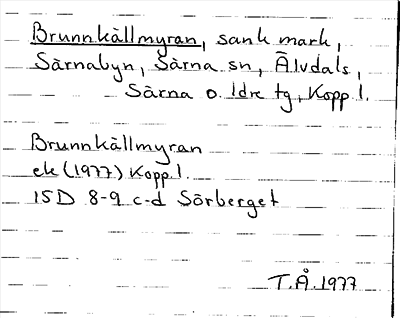 Brunnkällmyran, sank mark,
Särnabyn, Särna sn, Älvdals,
Särna o. Idre tg, Kopp. l.
Brunnkällmyran
ek (1977) Kopp. l.
15D 8-9 c-d Sörberget
T.Å. 1977